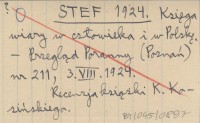 ? O STEF 1924. Księga
wiary w człowieka i w Polskę.
- Przegląd Poranny (Poznań)
nr 211, 3.VIII.1924.
Recenzja książki K. Ko-
sińskiego.